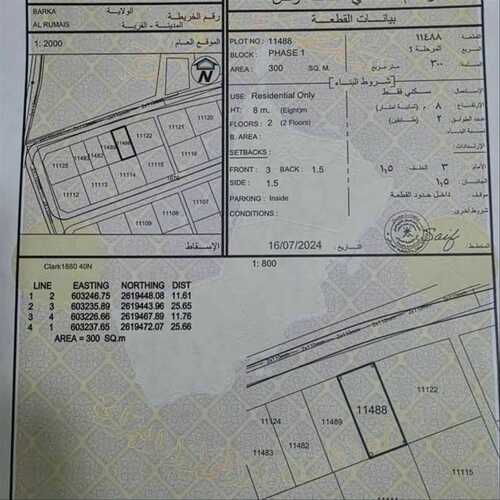 BARKA
الولاية
رقم الخريطة
AL RUMAIS
المدينة - القرية
بيانات القطعة
1: 2000
الموقع العام
N
PLOT NO : 11488
١١٤٨٨
القطعة
BLOCK : PHASE 1
المرحلة ١
المربع
AREA : 300 SQ. M.
متر مربع ٣٠٠
المساحة
شروط البناء
USE: Residential Only
سكني فقط
الاستعمال
HT: 8 m. (Eight)m
٨ م (ثمانية امتار)
الارتفاع
FLOORS : 2 (2 Floors)
٢ (طابقين)
عدد الطوابق
B. AREA :
مساحة البناء
SETBACKS :
الارتدادات
FRONT : 3 BACK : 1.5
الأمام ٣ الخلف ١,٥
SIDE : 1.5
١,٥
PARKING : Inside
داخل حدود القطعة
موقف
CONDITIONS :
شروط أخرى
11120
11121
11122
11488
11489
11482
11483
11125
11114
11113
11112
11110
11109
11108
11107
Saif
16/07/2024
التاريخ :
المخطط
الإسقاط
Clark1880 40N
1: 800
LINE EASTING NORTHING DIST
1 2 603246.75 2619448.08 11.61
2 3 603235.89 2619443.96 25.65
3 4 603226.66 2619467.89 11.76
4 1 603237.65 2619472.07 25.66
AREA = 300 SQ.m
2x110mm
11122
11488
11489
11124
11482
11483
11115
11111